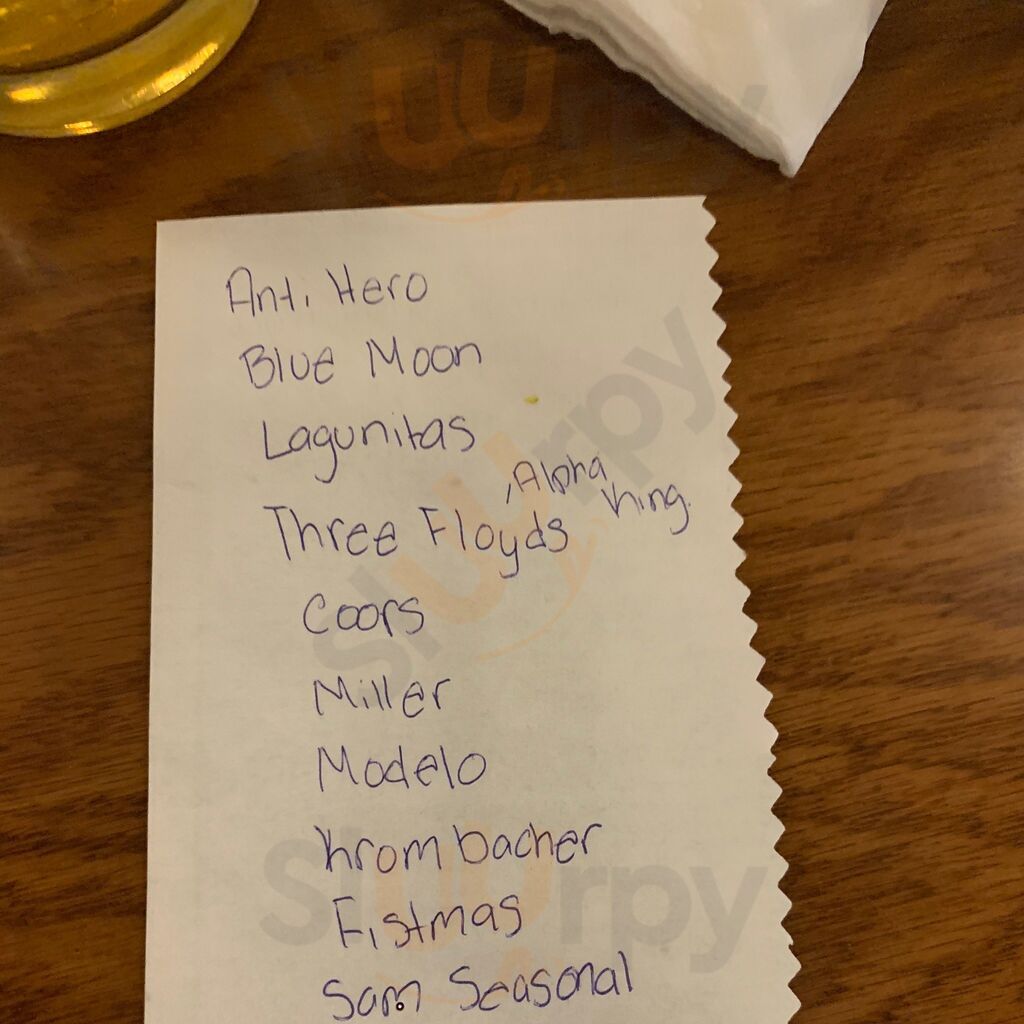 Anti Hero
Blue Moon
Lagunitas
Three Floyds, Alpha King.
Coors
Miller
Modelo
Krombacher
Fistmas
Sam Seasonal
slurpy
slurpy
slurpy